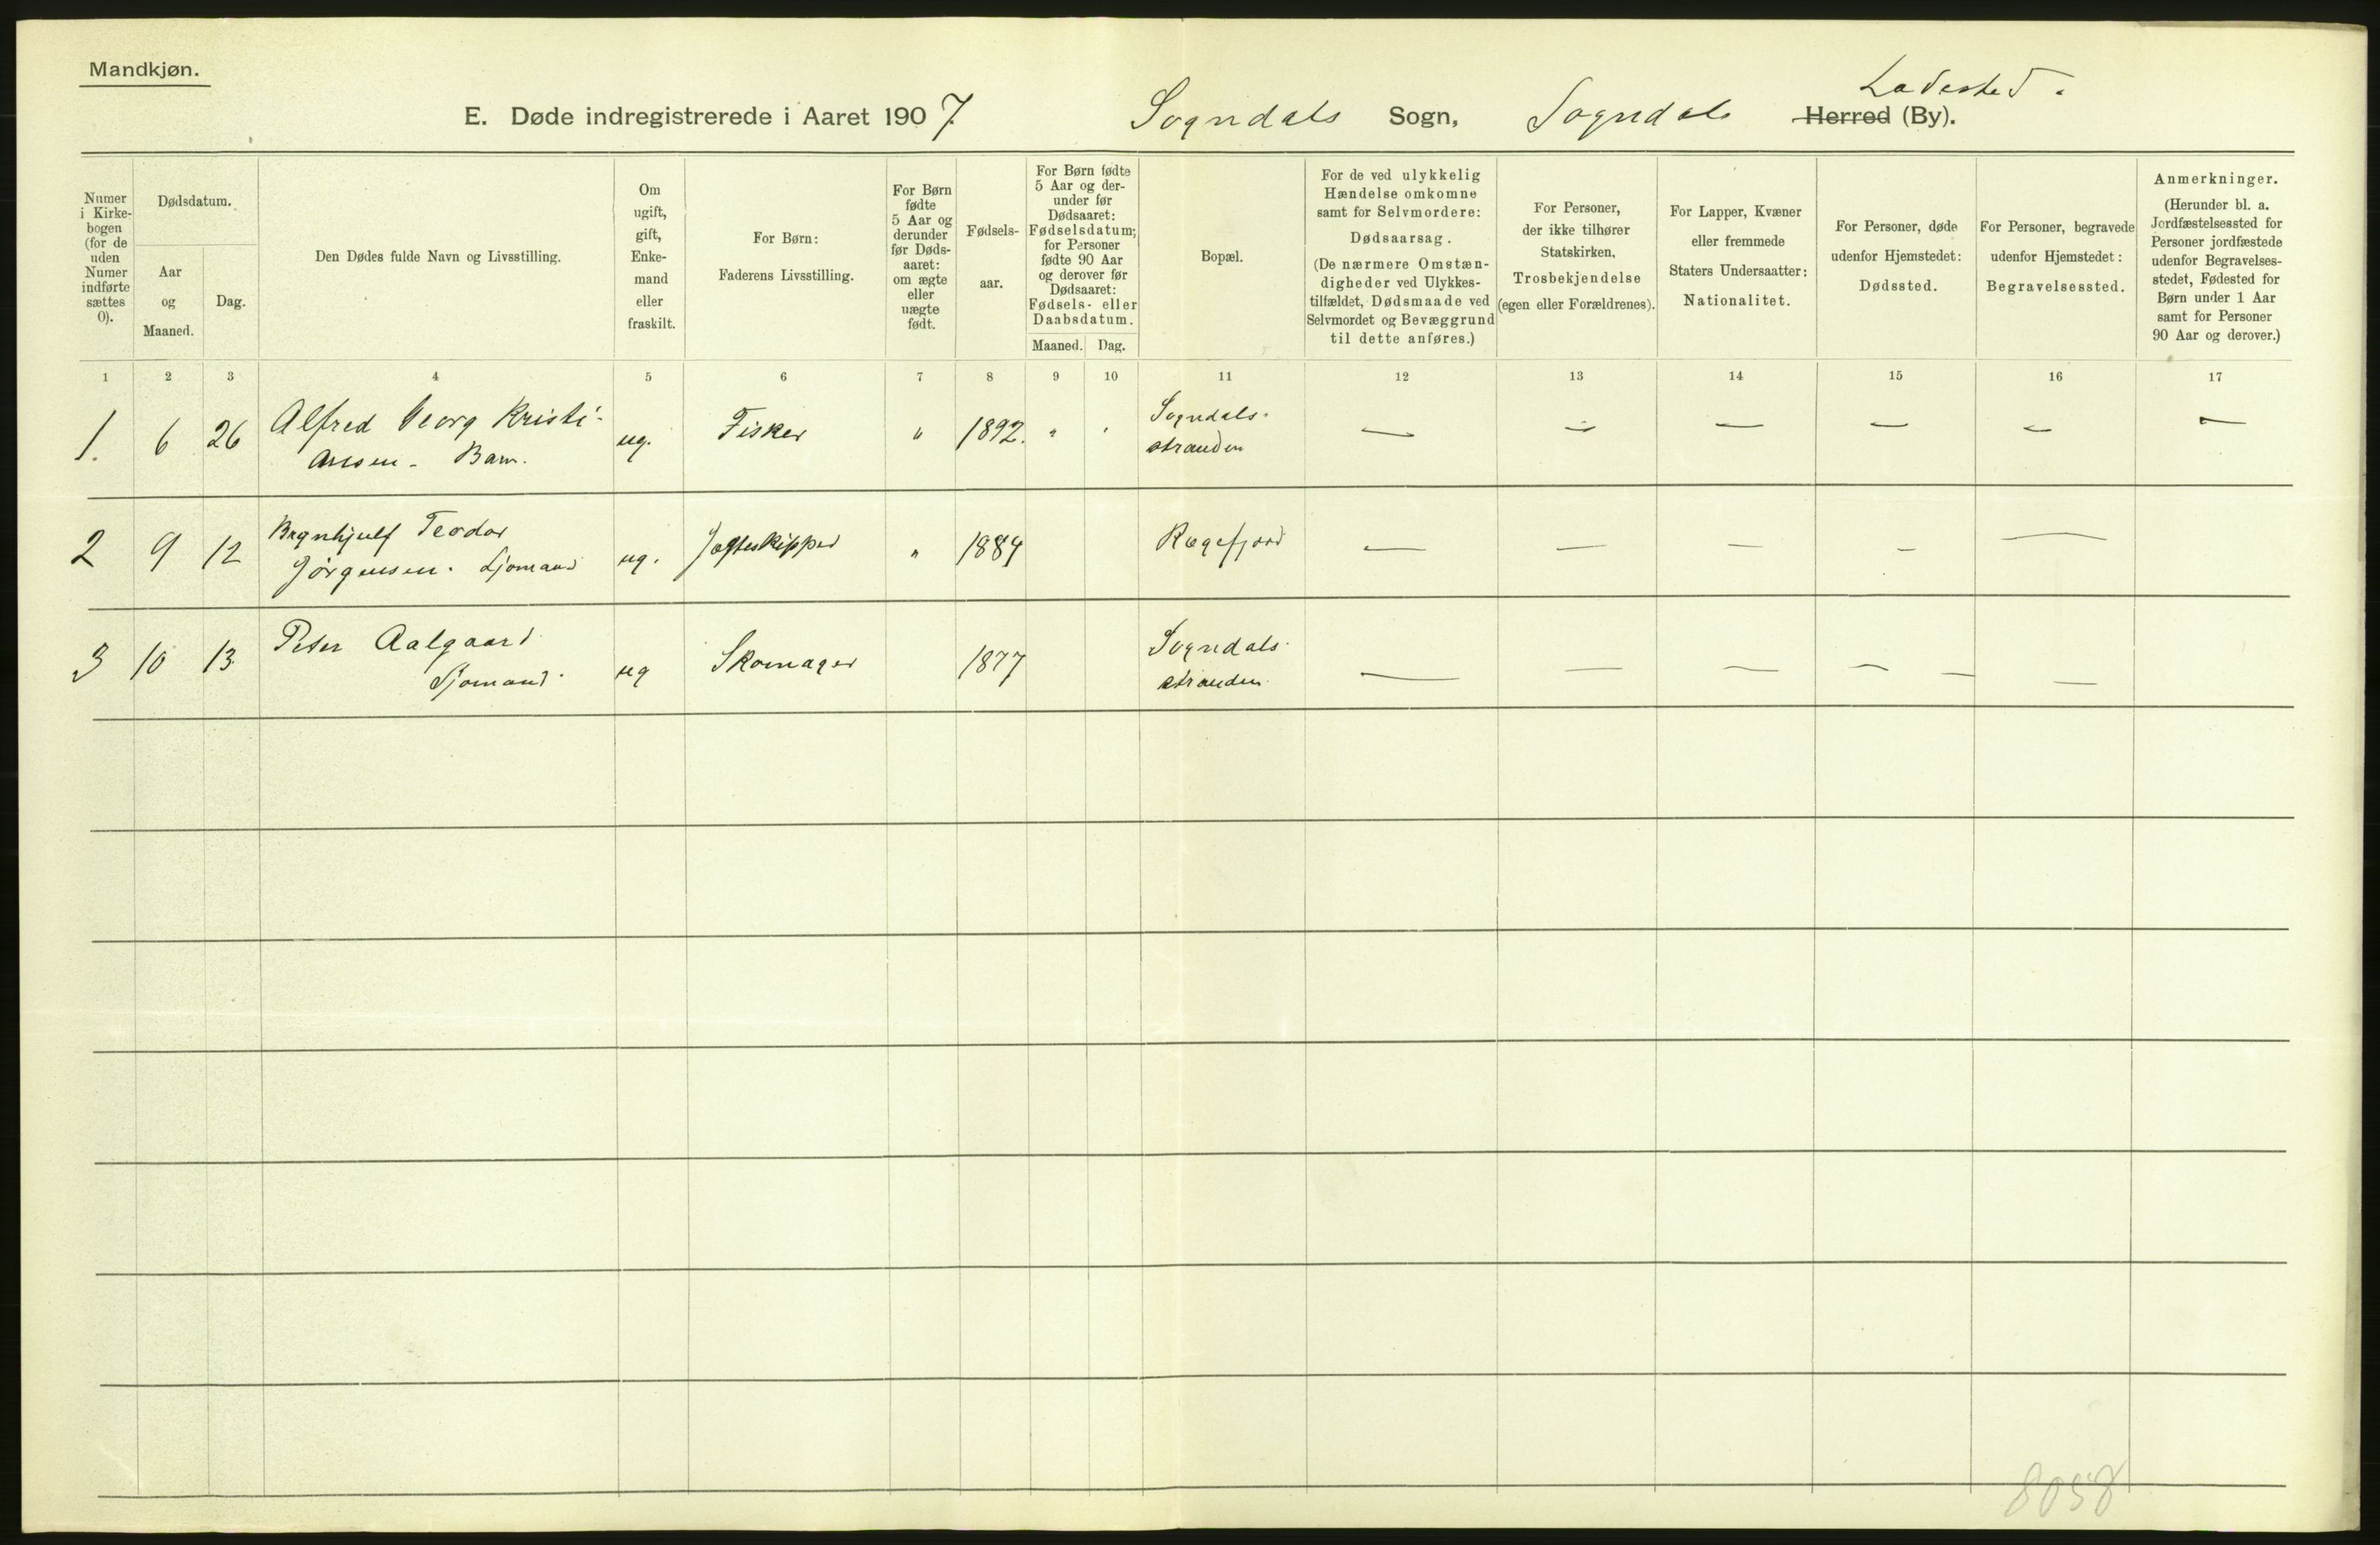 Mandkjøn.
Ladested.
E. Døde indregistrerede i Aaret 1907. Sogndals Sogn, Sogndals Herred (By).
Numer i Kirkebogen (for de uden Numer indførte sættes 0).
Dødsdatum.
Aar og Maaned.
Dag.
Den Dødes fulde Navn og Livsstilling.
Om ugift, gift, Enkemand eller fraskilt.
For Børn:
Faderens Livsstilling.
For Børn fødte 5 Aar og derunder før Dødsaaret: om ægte eller uægte født.
Fødselsaar.
For Børn fødte 5 Aar og derunder før Dødsaaret: Fødselsdatum; for Personer fødte 90 Aar og derover før Dødsaaret: Fødsels- eller Daabsdatum.
Maaned. Dag.
Bopæl.
For de ved ulykkelig Hændelse omkomne samt for Selvmordere:
Dødsaarsag.
(De nærmere Omstændigheder ved Ulykkestilfældet, Dødsmaade ved Selvmordet og Bevæggrund til dette anføres.)
For Personer, der ikke tilhører Statskirken,
Trosbekjendelse
(egen eller Forældrenes).
For Lapper, Kvæner eller fremmede Staters Undersaatter:
Nationalitet.
For Personer, døde udenfor Hjemstedet:
Dødssted.
For Personer, begravede udenfor Hjemstedet:
Begravelsessted.
Anmerkninger.
(Herunder bl. a. Jordfæstelsessted for Personer jordfæstede udenfor Begravelsesstedet, Fødested for Børn under 1 Aar samt for Personer 90 Aar og derover.)
1 2 3 4 5 6 7 8 9 10 11 12 13 14 15 16 17
1. 6 26 Alfred Georg Kristi- ug. Fisker " 1892. " " Sogndals- — — — — — —
ansen - Barn. stranden
2 9 12 Brynhjulf Teodor ug. Jagteskipper " 1889 Rægefjord — — — — —
Jørgensen. Sjømand
3 10 13 Peter Aalgaard ug Skomager 1877 Sogndals- — — — — — —
Sjømand. stranden.
8058